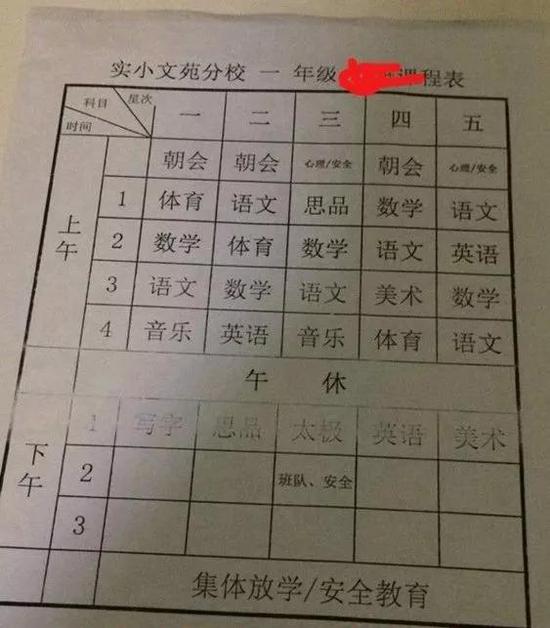 实小文苑分校 一 年级 课程表
科目 星次
时间
一 二 三 四 五
朝会 朝会 心理/安全 朝会 心理/安全
上午
1 体育 语文 思品 数学 语文
2 数学 体育 数学 语文 英语
3 语文 数学 语文 美术 数学
4 音乐 英语 音乐 体育 语文
午 休
下午
1 写字 思品 太极 英语 美术
2 班队、安全
3
集体放学/安全教育